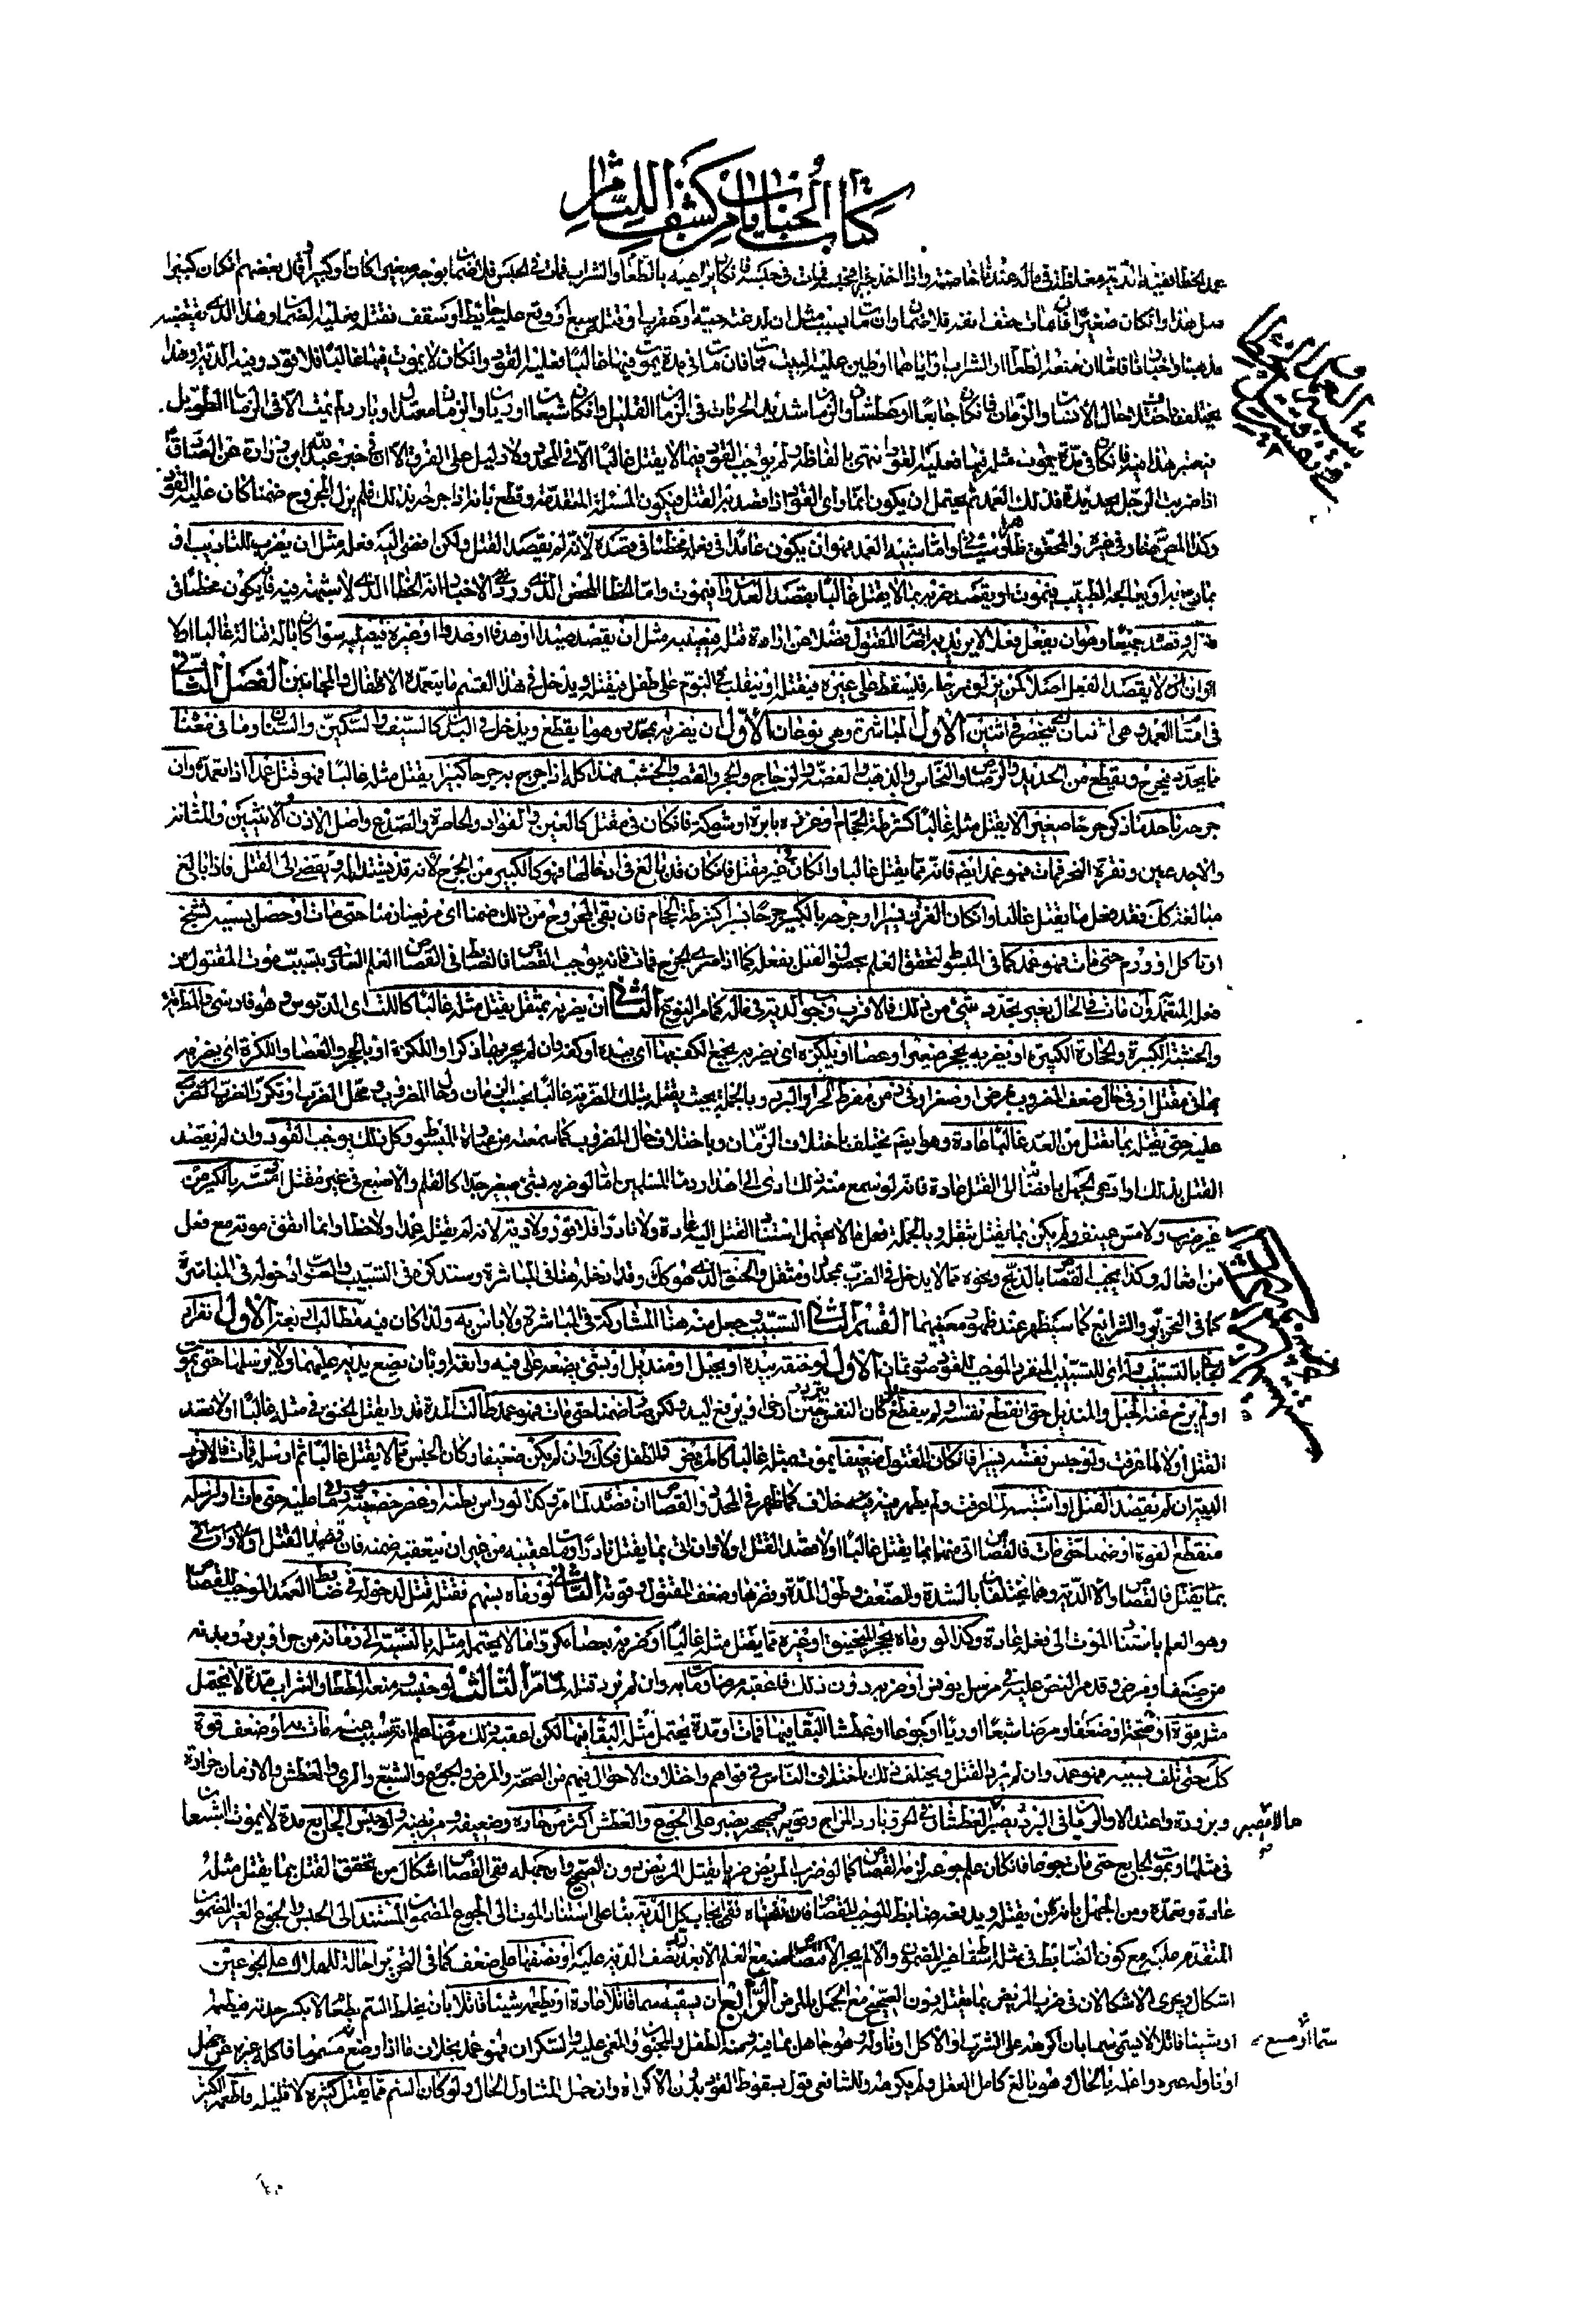 كتاب الجنايات من كشف اللثام
عمد الخطا ففيه الدية مغلظة في ماله عندنا خاصة واذا اخذ حرا فحبسه فمات في حبسه فان كان يراعيه بالطعام والشراب فمات في الحبس فلا ضمان بوجه صغيرا كان او كبيرا وقال بعضهم ان كان كبيرا
مثل هذا وان كان صغيرا فان مات حتف انفه فلا ضمان وان مات بسبب مثل ان لدغته حية او عقرب او قتله سبع او وقع عليه حايط او سقف فقتله فعليه الضمان وهذا الذي يقتضيه
مذهبنا واخبارنا فاما ان منعه الطعام او الشراب او اياهما او طين عليه البيت فمات فان مات في مدة يموت فيها غالبا فعليه القود وان كان لا يموت فيها غالبا فلا قود وفيه الدية وهذا
يختلف باختلاف حال الانسان والزمان فان كان جايعا او عطشان والزمان شديد الحر مات في الزمان القليل وان كان شبعان او ريان والزمان معتدل او بارد لم يمت الا في الزمان الطويل
فيعتبر هذا فيه فان كان في مدة يموت مثله فيها فعليه القود انتهى بالفاظه ولم يوجب القود فيما لا يقتل غالبا الا في المحدد ولا دليل على الفرق الا ان في خبر عبد الله بن زرارة عن الصادق
اذا ضرب الرجل بحديدة فذلك العمد ثم يحتمل ان يكون انما راى القود اذا قصد به القتل فيكون المسئلة المتقدمة وقطع بانه اذا جرحه بذلك فلم يزل المجروح ضمنا كان عليه القود
وكذا المص هنا وفي غيره والمحقق ظاهرا وسياتي واما شبيه العمد فهو ان يكون عامدا في فعله مخطئا في قصده لانه لم يقصد القتل ولكن افضى اليه فعله مثل ان يضرب للتاديب او
بمازح به او يعالجه الطبيب فيموت او يقصد ضربه بما لا يقتل غالبا بقصد العدوان فيموت واما الخطا المحض الذي ورد في الاخبار انه الخطا الذي لا شبهة فيه فان يكون مخطئا في
فعله وقصده جميعا وهو ان يفعل فعلا لا يريد به اصابة المقتول فضلا عن ارادة قتله فيصيبه مثل ان يقصد صيدا او هدفا او عدوا او غيره فيصيبه سواء كان بآلة قتالة غالبا او لا
او ان لا يقصد الفعل اصلا كمن يزلق رجله فيسقط على غيره فيقتله او ينقلب في النوم على طفل فيقتله ويدخل في هذا القسم ما يتعمده الاطفال والمجانين الفصل الثاني
في اقسام العمد وهي اثنان ينحصر في اثنين الاول المباشرة وهي نوعان الاول ان يضربه بمحدد وهو ما يقطع ويدخل في البدن كالسيف والسكين والسنان وما في معناه
مما يحدد فيجرح ويقطع من الحديد والرصاص والنحاس والذهب والفضة والزجاج والحجر والقصب والخشب فهذا كله اذا جرح به جرحا كبيرا يقتل مثله غالبا فهو قتل عمد اذا تعمده وان
جرحه باحد ما ذكر جرحا صغيرا لا يقتل مثله غالبا كشرطة الحجام او غرزه بابرة او شوكة فان كان في مقتل كالعين والفواد والخاصرة والصدغ واصل الاذن والانثيين والمثانة
والاخدعين ونقرة النحر فمات فهو عمد ايضم فانه مما يقتل غالبا وان كان في غير مقتل فان كان قد بالغ في ادخالها فهو كالكبير من الجرح لانه قد يشتد المه ويفضي الى القتل فاذا بالغ
مبالغة كك فقد فعل ما يقتل غالبا وان كان الغرز يسيرا او جرحه بالكبير جرحا يسيرا كشرطة الحجام فان بقي المجروح من ذلك ضمنا اي مريضا زمنا حتى مات او حصل بسببه تشنج
او تاكل او ورم حتى مات فهو عمد كما في المبسوط لتحقق العلم بحصول القتل بفعله كما اذا سرى الجرح فمات فانه يوجب القصاص فالضابط في القصاص العلم العادي بتسبب موت المقتول من
فعل المتعمد وان مات في الحال بغير تجدد شيء من ذلك فالاقرب وجوب الدية في ماله كما مر النوع الثاني ان يضربه بمثقل يقتل مثله غالبا كاللت اي الدبوس وهو فارسي والمطرقة
والخشبة الكبيرة والحجارة الكبيرة او يضربه بحجر صغير او عصا او يلكزه اي يضربه بجمع الكف بها اي بيده او كفه وان لم يجر بها ذكر او اللكزة او بالحجر والعصا واللكزة اي يضربه
بها في مقتل او في حال ضعف المضروب بمرض او صغر او في زمن مفرط الحر او البرد وبالجملة بحيث يقتله بتلك الضربة غالبا بحسب الزمان وحال المضروب ومحل الضرب او يكرر الضرب
عليه حتى يقتله بما يقتل من العدد غالبا عادة وهو ايضم يختلف باختلاف الزمان وباختلاف حال المضروب كما سمعته من عبارة المبسوط وكل ذلك يوجب القود وان لم يقصد
القتل بذلك او ادعى الجهل بافضائه الى القتل عادة فانه لو سمع منه ذلك ادى الى اهدار دماء المسلمين اما لو ضربه بشيء صغير جدا كالقلم والاصبع في غير مقتل او مسه بالكبير من
غير ضرب ولا مس عنيف ولم يكن مما يقتل بثقله وبالجملة فعل ما لا يحتمل استناد القتل اليه عادة ولا نادرا فلا قود ولا دية لانه لم يقتل عمدا ولا خطا وانما اتفق موته مع فعل
من افعاله وكذا يجب القصاص بالذبح ونحوه مما لا يدخل في الضرب بمحدد او مثقل والخنق الذي هو كك وقد ادخله هنا في المباشرة وسنذكره في التسبيب والصواب دخوله في المباشرة
كما في التحرير والشرايع كما سيظهر عند ظهور معنييهما القسم الثاني التسبيب وجعل منه هنا المشاركة في المباشرة ولا باس به ولذا كان فيه مطالب اربعة الاول انفراد
الجاني بالتسبيب وله اي للتسبيب المنفرد الموجب للقود صور ثمان الاول لو خنقه بيده او بحبل او منديل او بشيء يضعه على فيه وانفه او بان يضع يديه عليهما ولا يرسلهما حتى يموت
او لم يرخ عنه الحبل والمنديل حتى انقطع نفسه او لم ينقطع بل كان النفس يتردد حين ارخى او رفع اليد ولكن بقي ضمنا حتى مات فهو عمد طالت المدة قدرا يقتل الخنق في مثله غالبا او لا قصد
القتل او لا لما عرفت ولو حبس نفسه يسيرا فان كان المقتول ضعيفا يموت بمثله غالبا كالمريض والطفل فكك وان لم يكن ضعيفا وكان الحبس مما لا يقتل غالبا ثم ارسله فمات فالاقرب
الدية ان لم يقصد القتل او اشتبه لما عرفت ولم يظهر فيه خلاف كما ظهر في المحدد والقصاص ان قصده لما مر وكذا لو داس بطنه او عصر خصيتيه حتى مات او ارسله
منقطع القوة او ضمنا حتى مات فالقصاص ان فعلهما بما يقتل غالبا او لا قصد القتل او لا وان اتى بما يقتل نادرا ومات عقيبه من غير ان يتعقبه ضمنه فان قصد القتل او لا واتى
بما يقتل فالقصاص والا الدية وهما يختلفان بالشدة والضعف وطول المدة وقصرها وضعف المقتول وقوته الثاني لو رماه بسهم فقتله قتل لدخوله في ضابط العمد الموجب للقصاص
وهو العلم باستناد الموت الى فعله عادة وكذا لو رماه بحجر المنجنيق او غيره مما يقتل مثله غالبا او ضربه بعصا مكررا ما لا يحتمله مثله بالنسبة الى زمانه من حر او برد وبدنه
من ضعيف او مرض وقد مر النص عليه في مرسل يونس او ضربه دون ذلك فاعقبه مرضا ومات به وان لم يرد قتله لما مر الثالث لو حبسه ومنعه الطعام والشراب مدة لا يحتمل
مثله قوة او صحة او ضعفا ومرضا شبعا او ريا او جوعا او عطشا البقاء فيها فمات او مدة يحتمل مثله البقاء فيها لكن اعقبه ذلك مرضا علم انه مسبب عنه فمات به او ضعف قوة
كك حتى تلف بسببه فهو عمد وان لم يرد القتل ويختلف في ذلك باختلاف الناس في قواهم واختلاف الاحوال فيهم من الصحة والمرض والجوع والشبع والري والعطش والازمان حرارة
وبرودة واعتدالا والريان في البرد يصبر ما لا يصبر العطشان في الحر وبارد المزاج وقويه وصحيحه يصبر على الجوع والعطش اكثر من حاره وضعيفه ومريضه ولو حبس الجايع مدة لا يموت الشبعان
في مثلها ويموت الجايع حتى مات جوعا فان كان علم جوعه لزمه القصاص كما لو ضرب المريض ضربا يقتل المريض دون الصحيح وان جهله ففي القصاص اشكال من تحقق القتل بما يقتل مثله
عادة وتعمده ومن الجهل بانه ممن يقتله ويدفعه ضابط الموجب للقصاص فان نفيناه ففي ايجاب كل الدية بناء على استناد الموت الى الجوع المضمون المستند الى الحبس والجوع الغير المضمون
المتقدم عليه مع كون الضابط في مثله اسقاط غير المضمون والا لم يجز الاقتصاص منه مع العلم الا بعد رد نصف الدية عليه او نصفها على ضعف كما في التحرير احالة للهلاك على الجوعين
اشكال ويجري الاشكالان في ضرب المريض بما يقتله دون الصحيح مع الجهل بالمرض الرابع ان يسقيه سما قاتلا عادة او يطعمه شيئا قاتلا بان يخلط السم بطعام لا يكسر حدته فيطعمه
او شيئا قاتلا لا يسمى سما بان اكرهه على الشرب او الاكل او ناوله وهو جاهل بما فيه ومنه الطفل والمجنون والمغمى عليه والسكران فهو عمد بخلاف ما اذا وضع مسموما فاكله غيره عن جهل
او ناوله غيره واعلمه بالحال وهو بالغ كامل العقل ولم يكرهه وللشافعي قول بسقوط القود بدون الاكراه وان جهل المتناول الحال ولو كان السم مما يقتل كثيره لا قليله فاطعمه الكثير